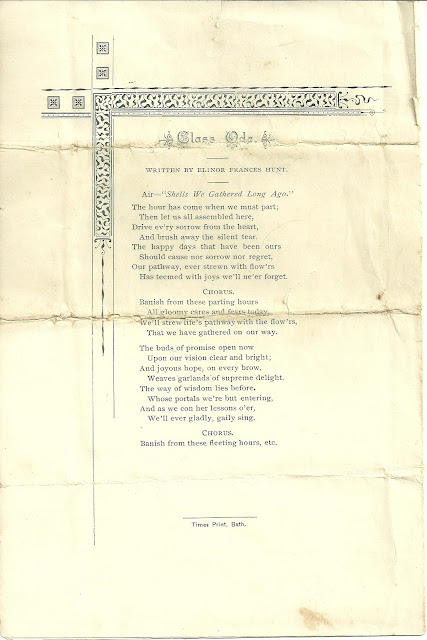 Class Ode.
WRITTEN BY ELINOR FRANCES HUNT.
Air—"Shells We Gathered Long Ago."
The hour has come when we must part;
Then let us all assembled here,
Drive ev'ry sorrow from the heart,
And brush away the silent tear.
The happy days that have been ours
Should cause nor sorrow nor regret,
Our pathway, ever strewn with flow'rs
Has teemed with joys we'll ne'er forget.
CHORUS.
Banish from these parting hours
All gloomy cares and fears today,
We'll strew life's pathway with the flow'rs,
That we have gathered on our way.
The buds of promise open now
Upon our vision clear and bright;
And joyous hope, on every brow,
Weaves garlands of supreme delight.
The way of wisdom lies before,
Whose portals we're but entering,
And as we con her lessons o'er,
We'll ever gladly, gaily sing.
CHORUS.
Banish from these fleeting hours, etc.
Times Print, Bath.